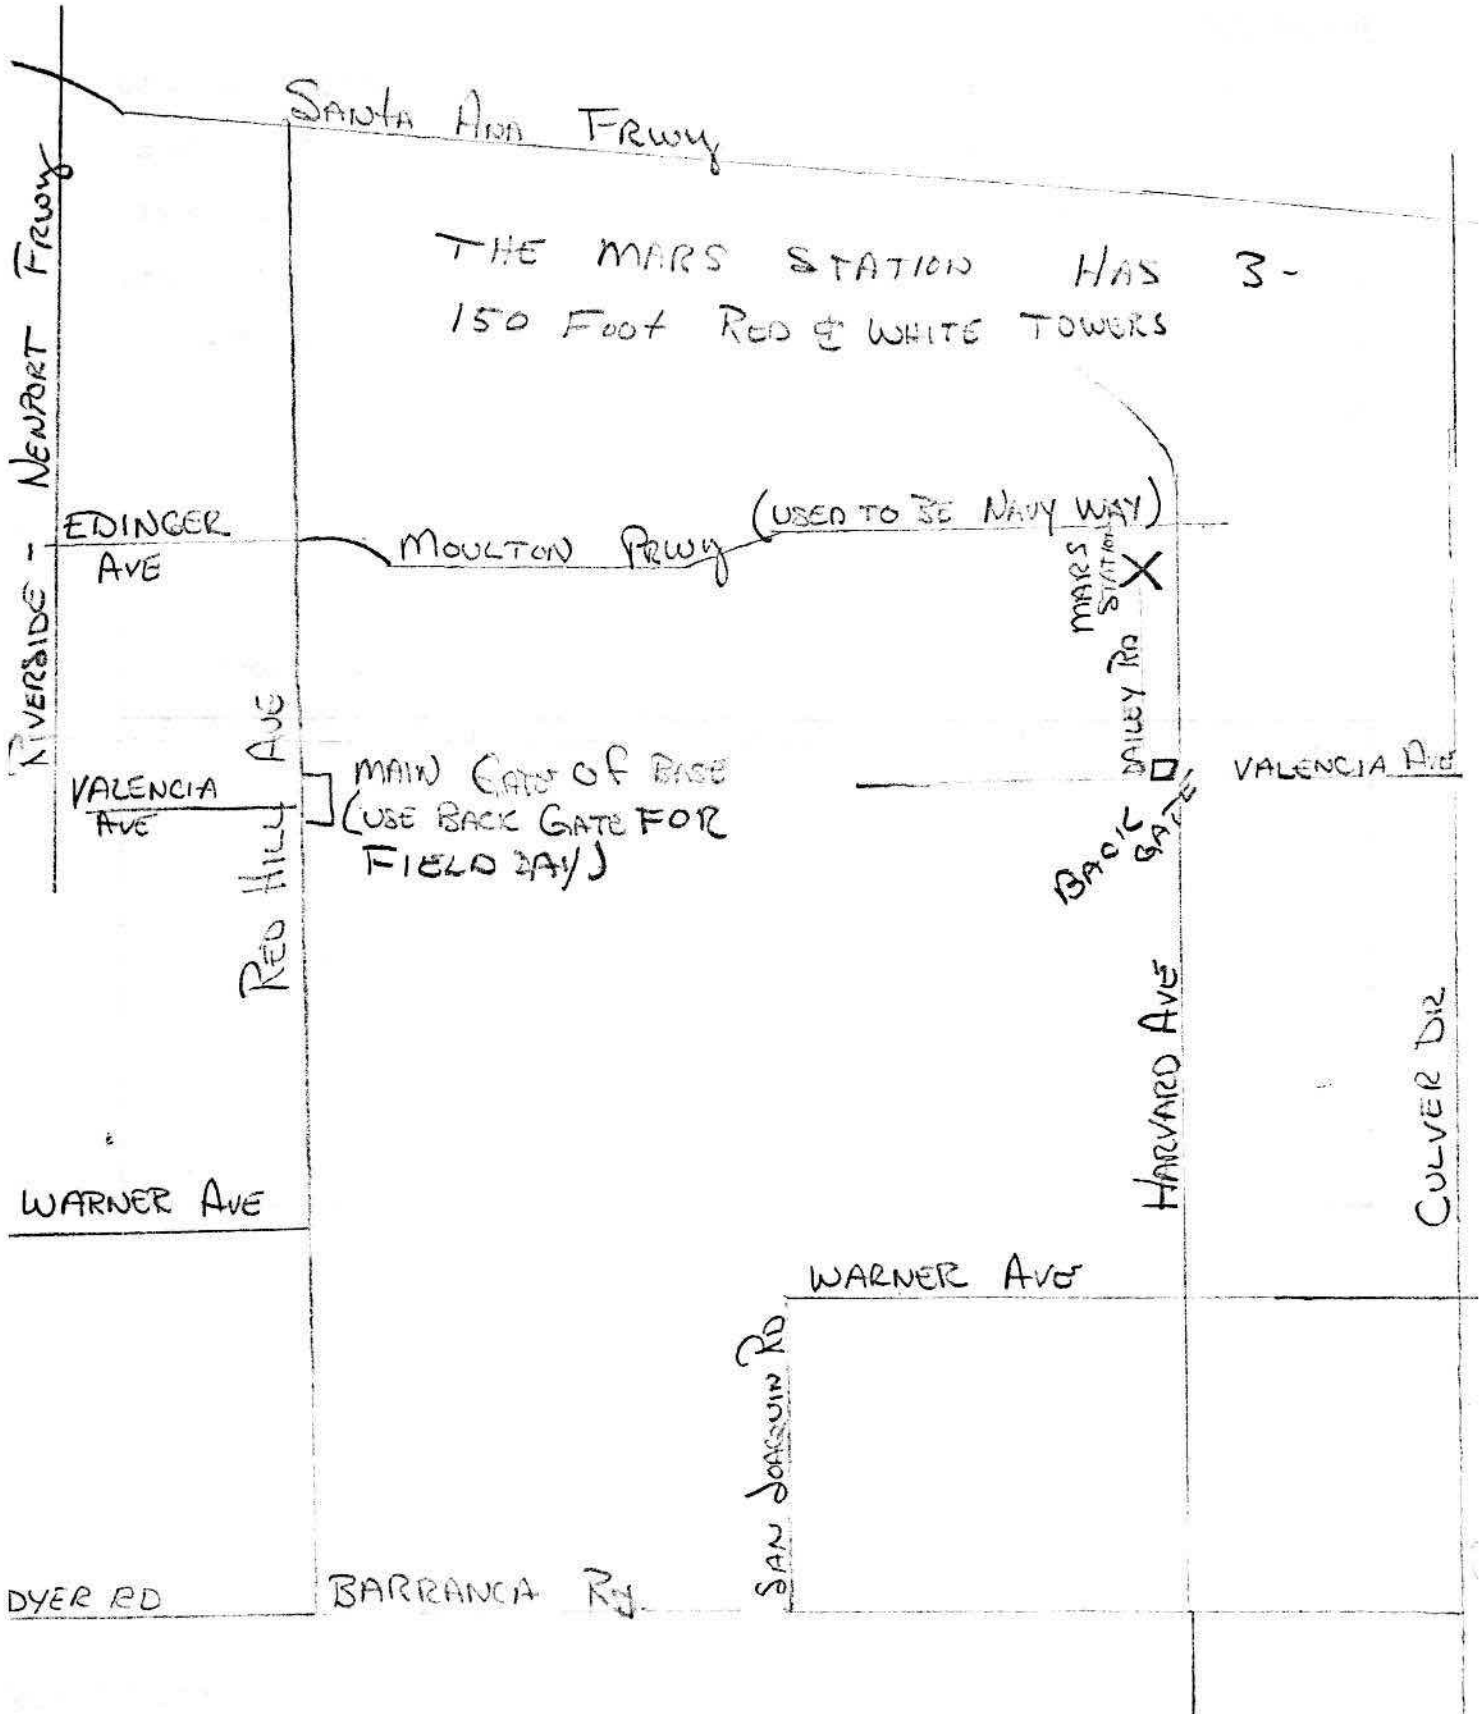 SANTA ANA FRWY
RIVERSIDE - NEWPORT FRWY
THE MARS STATION HAS 3-
150 FOOT RED & WHITE TOWERS
EDINGER
AVE
MOULTON PRWY
(USED TO BE NAVY WAY)
MARS
STATION
X
DAILEY RD
RED HILL AVE
VALENCIA
AVE
MAIN GATE OF BASE
(USE BACK GATE FOR
FIELD DAY)
VALENCIA AVE
BACK
GATE
HARVARD AVE
CULVER DR
WARNER AVE
WARNER AVE
SAN JOAQUIN RD
DYER RD
BARRANCA Rd.